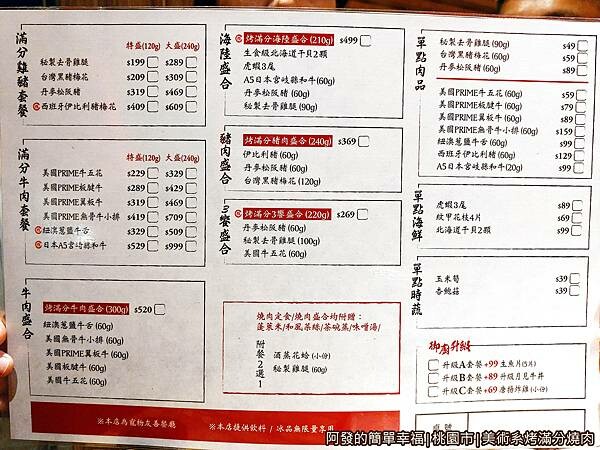 滿分雞豬套餐
特盛(120g) 大盛(240g)
秘製去骨雞腿 $199 $289
台灣黑豬梅花 $209 $309
丹麥松阪豬 $319 $469
西班牙伊比利豬梅花 $409 $609
滿分牛肉套餐
特盛(120g) 大盛(240g)
美國PRIME牛五花 $229 $329
美國PRIME板腱牛 $289 $429
美國PRIME翼板牛 $319 $469
美國PRIME無骨牛小排 $419 $709
紐澳蔥鹽牛舌 $329 $509
日本A5宮崎縣和牛 $529 $999
牛肉盛合
烤滿分牛肉盛合(300g) $520
紐澳蔥鹽牛舌(60g)
美國無骨牛小排(60g)
美國PRIME翼板牛(60g)
美國板腱牛(60g)
美國牛五花(60g)
海陸盛合
烤滿分海陸盛合(210g) $499
生食級北海道干貝2顆
虎蝦3尾
A5日本宮崎縣和牛(60g)
丹麥松阪豬(60g)
秘製去骨雞腿(90g)
豬肉盛合
烤滿分豬肉盛合(240g) $369
伊比利豬(60g)
丹麥松阪豬(60g)
台灣黑豬梅花(120g)
3饗盛合
烤滿分3饗盛合(220g) $269
丹麥松阪豬(60g)
秘製去骨雞腿(100g)
美國牛五花(60g)
燒肉定食/燒肉盛合均附贈：
蓬萊米/和風菜絲/茶碗蒸/味噌湯/
附餐2選1
酒蒸花蛤(小份)
秘製雞腿(60g)
單點肉品
秘製去骨雞腿(90g) $49
台灣黑豬梅花(60g) $59
丹麥松阪豬(60g) $89
美國PRIME牛五花(60g) $59
美國PRIME板腱牛(60g) $79
美國PRIME翼板牛(60g) $89
美國PRIME無骨牛小排(60g) $159
紐澳蔥鹽牛舌(60g) $99
西班牙伊比利豬(60g) $129
A5日本宮崎縣和牛(20g) $99
單點海鮮
虎蝦3尾 $89
紋甲花枝4片 $69
北海道干貝2顆 $99
單點時蔬
玉米筍 $39
杏鮑菇 $39
御廚升級
升級A套餐+99生魚片(5片)
升級B套餐+89升級月見牛丼
升級C套餐+69唐揚炸雞(小份)
※本店為寵物友善餐廳 ※本店提供飲料/冰品無限量享用
桌號
阿發的簡單幸福|桃園市|美術系烤滿分燒肉